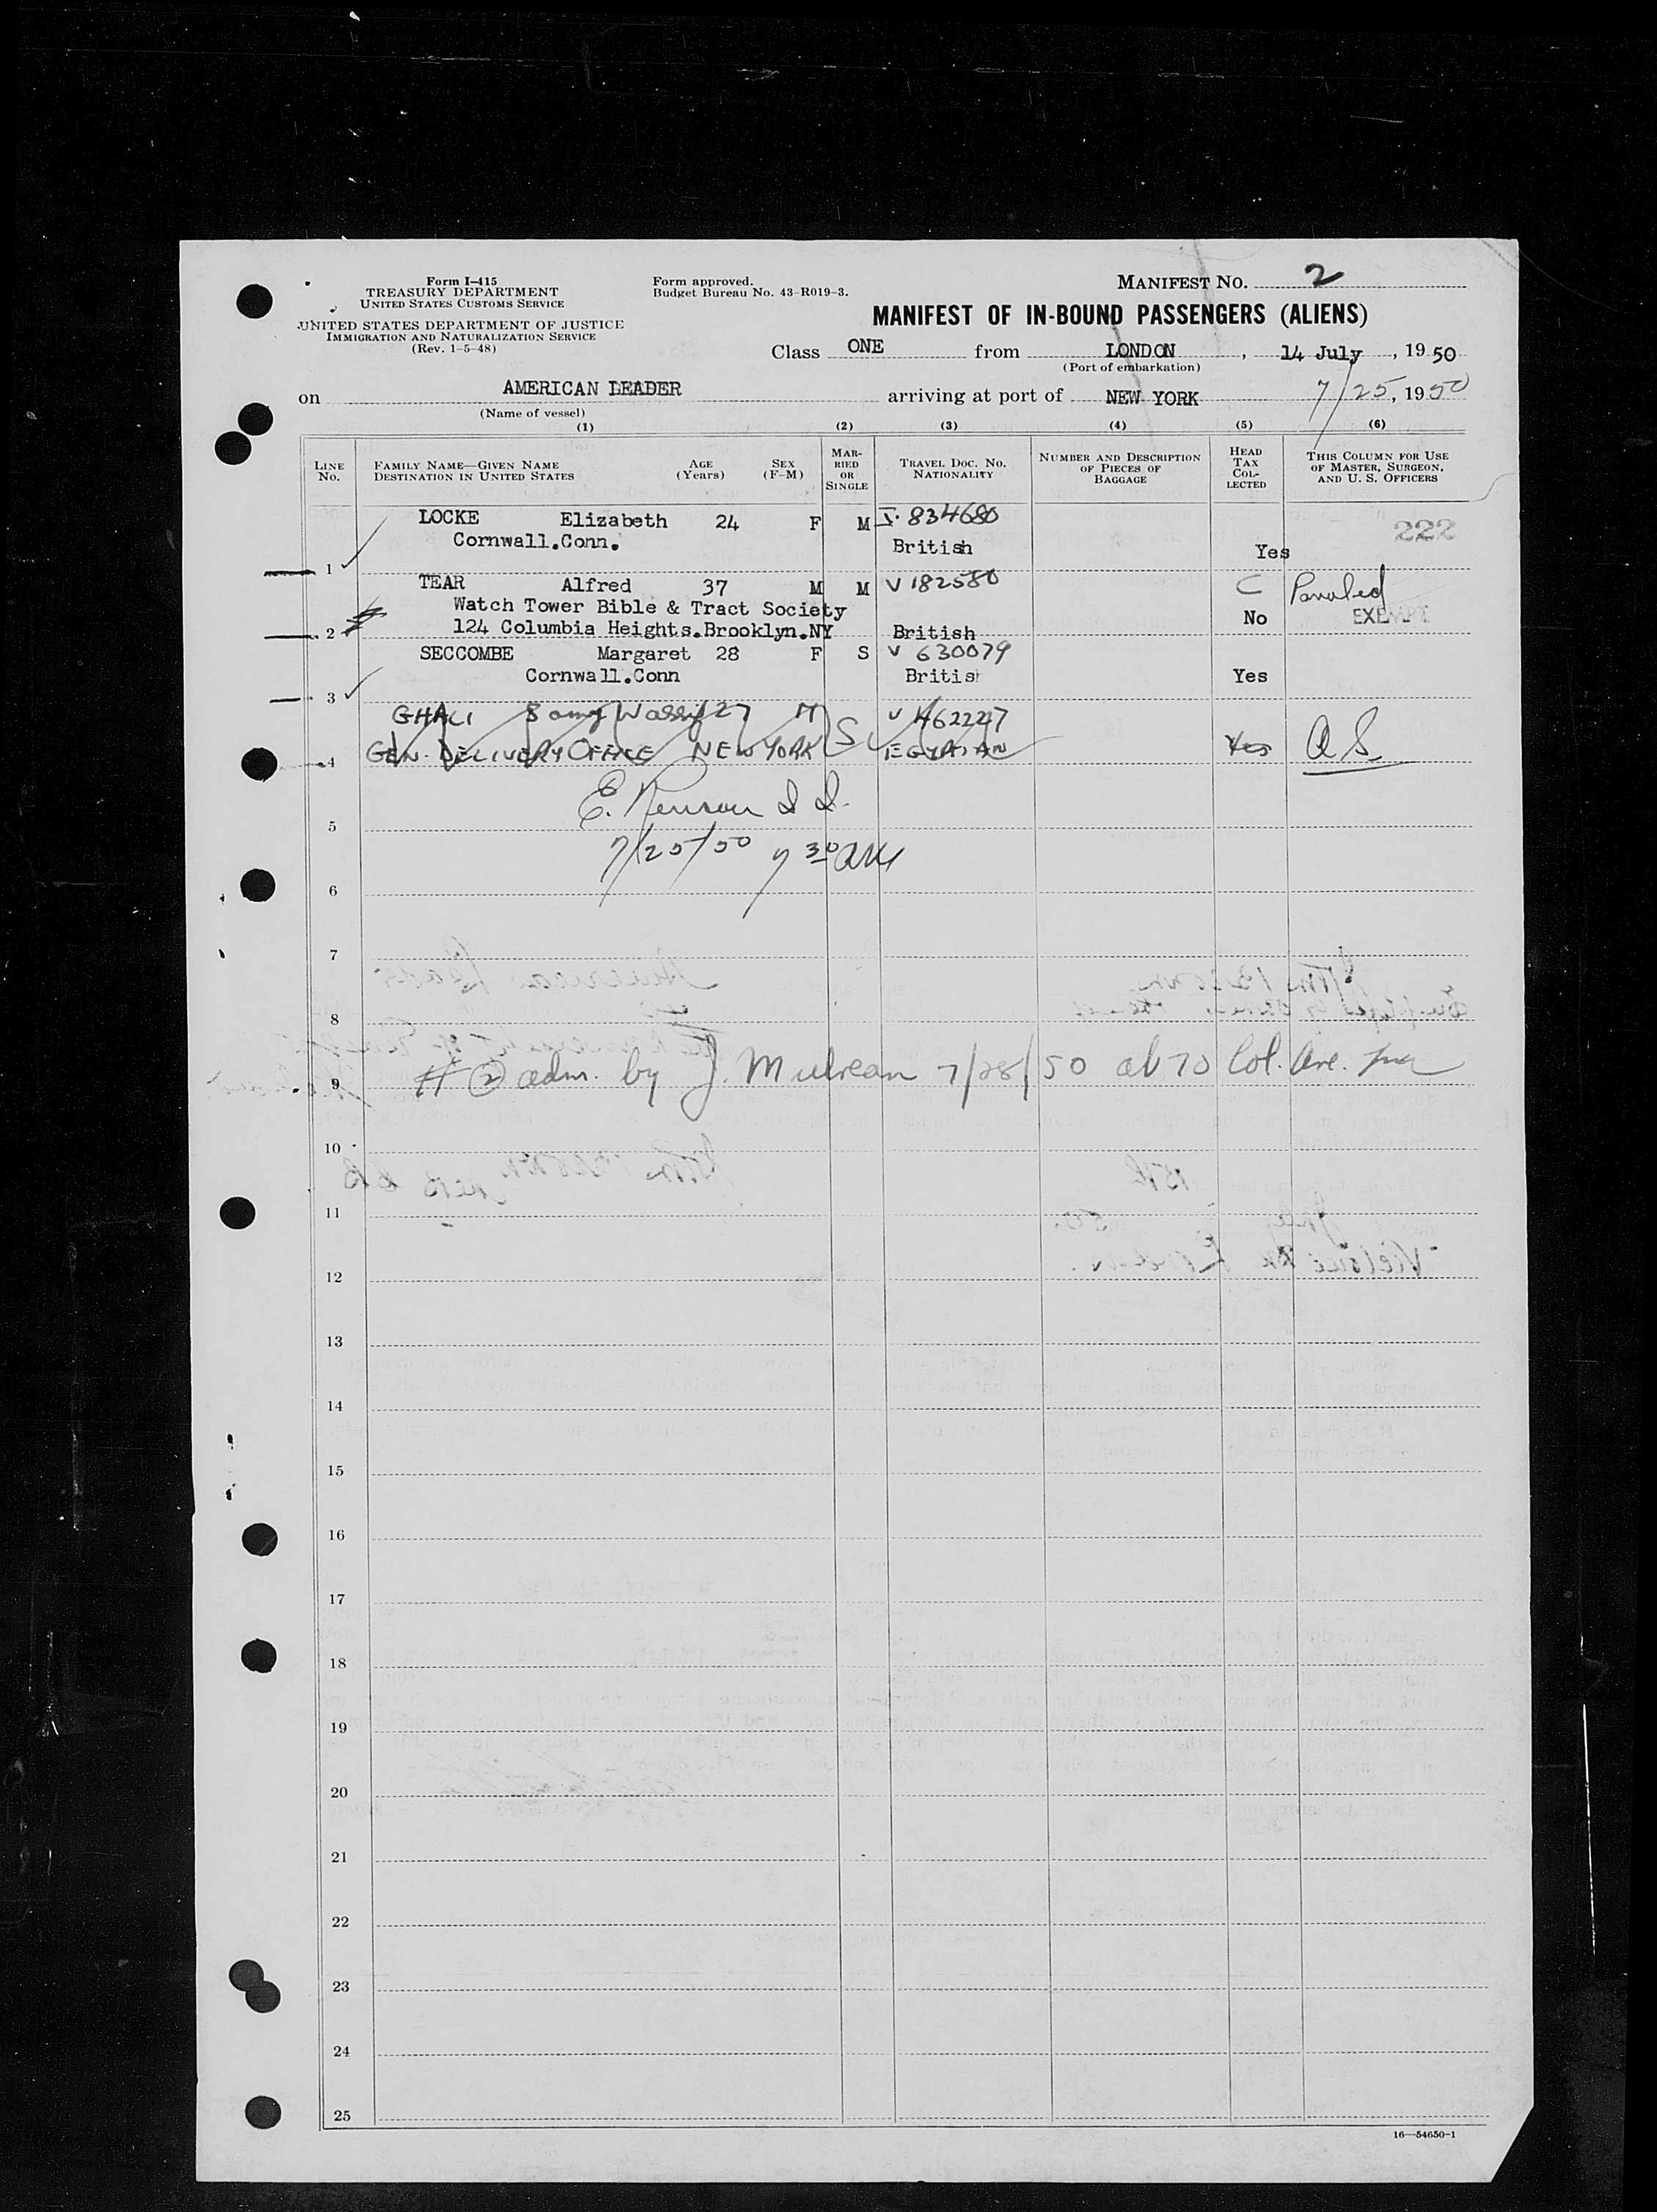 Form I-415
TREASURY DEPARTMENT
UNITED STATES CUSTOMS SERVICE
UNITED STATES DEPARTMENT OF JUSTICE
IMMIGRATION AND NATURALIZATION SERVICE
(Rev. 1-5-48)
Form approved.
Budget Bureau No. 43-R019-3.
MANIFEST NO. 2
MANIFEST OF IN-BOUND PASSENGERS (ALIENS)
Class ONE from LONDON, 14 July, 1950
(Port of embarkation)
on AMERICAN LEADER arriving at port of NEW YORK 7/25, 1950
(Name of vessel)
(1) (2) (3) (4) (5) (6)
LINE No.
FAMILY NAME—GIVEN NAME
DESTINATION IN UNITED STATES
AGE (Years)
SEX (F-M)
MARRIED OR SINGLE
TRAVEL DOC. NO.
NATIONALITY
NUMBER AND DESCRIPTION OF PIECES OF BAGGAGE
HEAD TAX COLLECTED
THIS COLUMN FOR USE OF MASTER, SURGEON, AND U. S. OFFICERS
LOCKE Elizabeth 24 F M 834680
222
Cornwall.Conn. British Yes
1
TEAR Alfred 37 M M V 182580 C Paroled
Watch Tower Bible & Tract Society No EXEMPT
2 124 Columbia Heights.Brooklyn.NY British
SECCOMBE Margaret 28 F S V 630079
Cornwall.Conn British Yes
3
GHALI Samy Wassif 27 M S V 462227
4 GEN. DELIVERY OFFICE NEW YORK EGYPTIAN Yes
E.
5
7/25/50 7 30 AM
6
7
8
# 2 adm. by J. Mulrean 7/28/50 at 70 Col. Ave.
9
10
11
12
13
14
15
16
17
18
19
20
21
22
23
24
25
16—54650-1